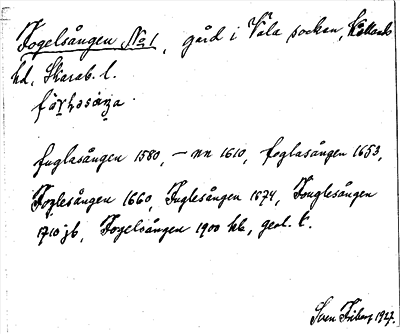 Fogelsången No 1, gård i Våla socken, Kåkinds
hd, Skarab. l.
fuglasången 1580, – nn 1610, foglasången 1653,
Foglesången 1660, Fuglesången 1674, Fouglesången
1710 jb, Fogelsången 1900 hk, geol. k.
Sven Friberg 1927.